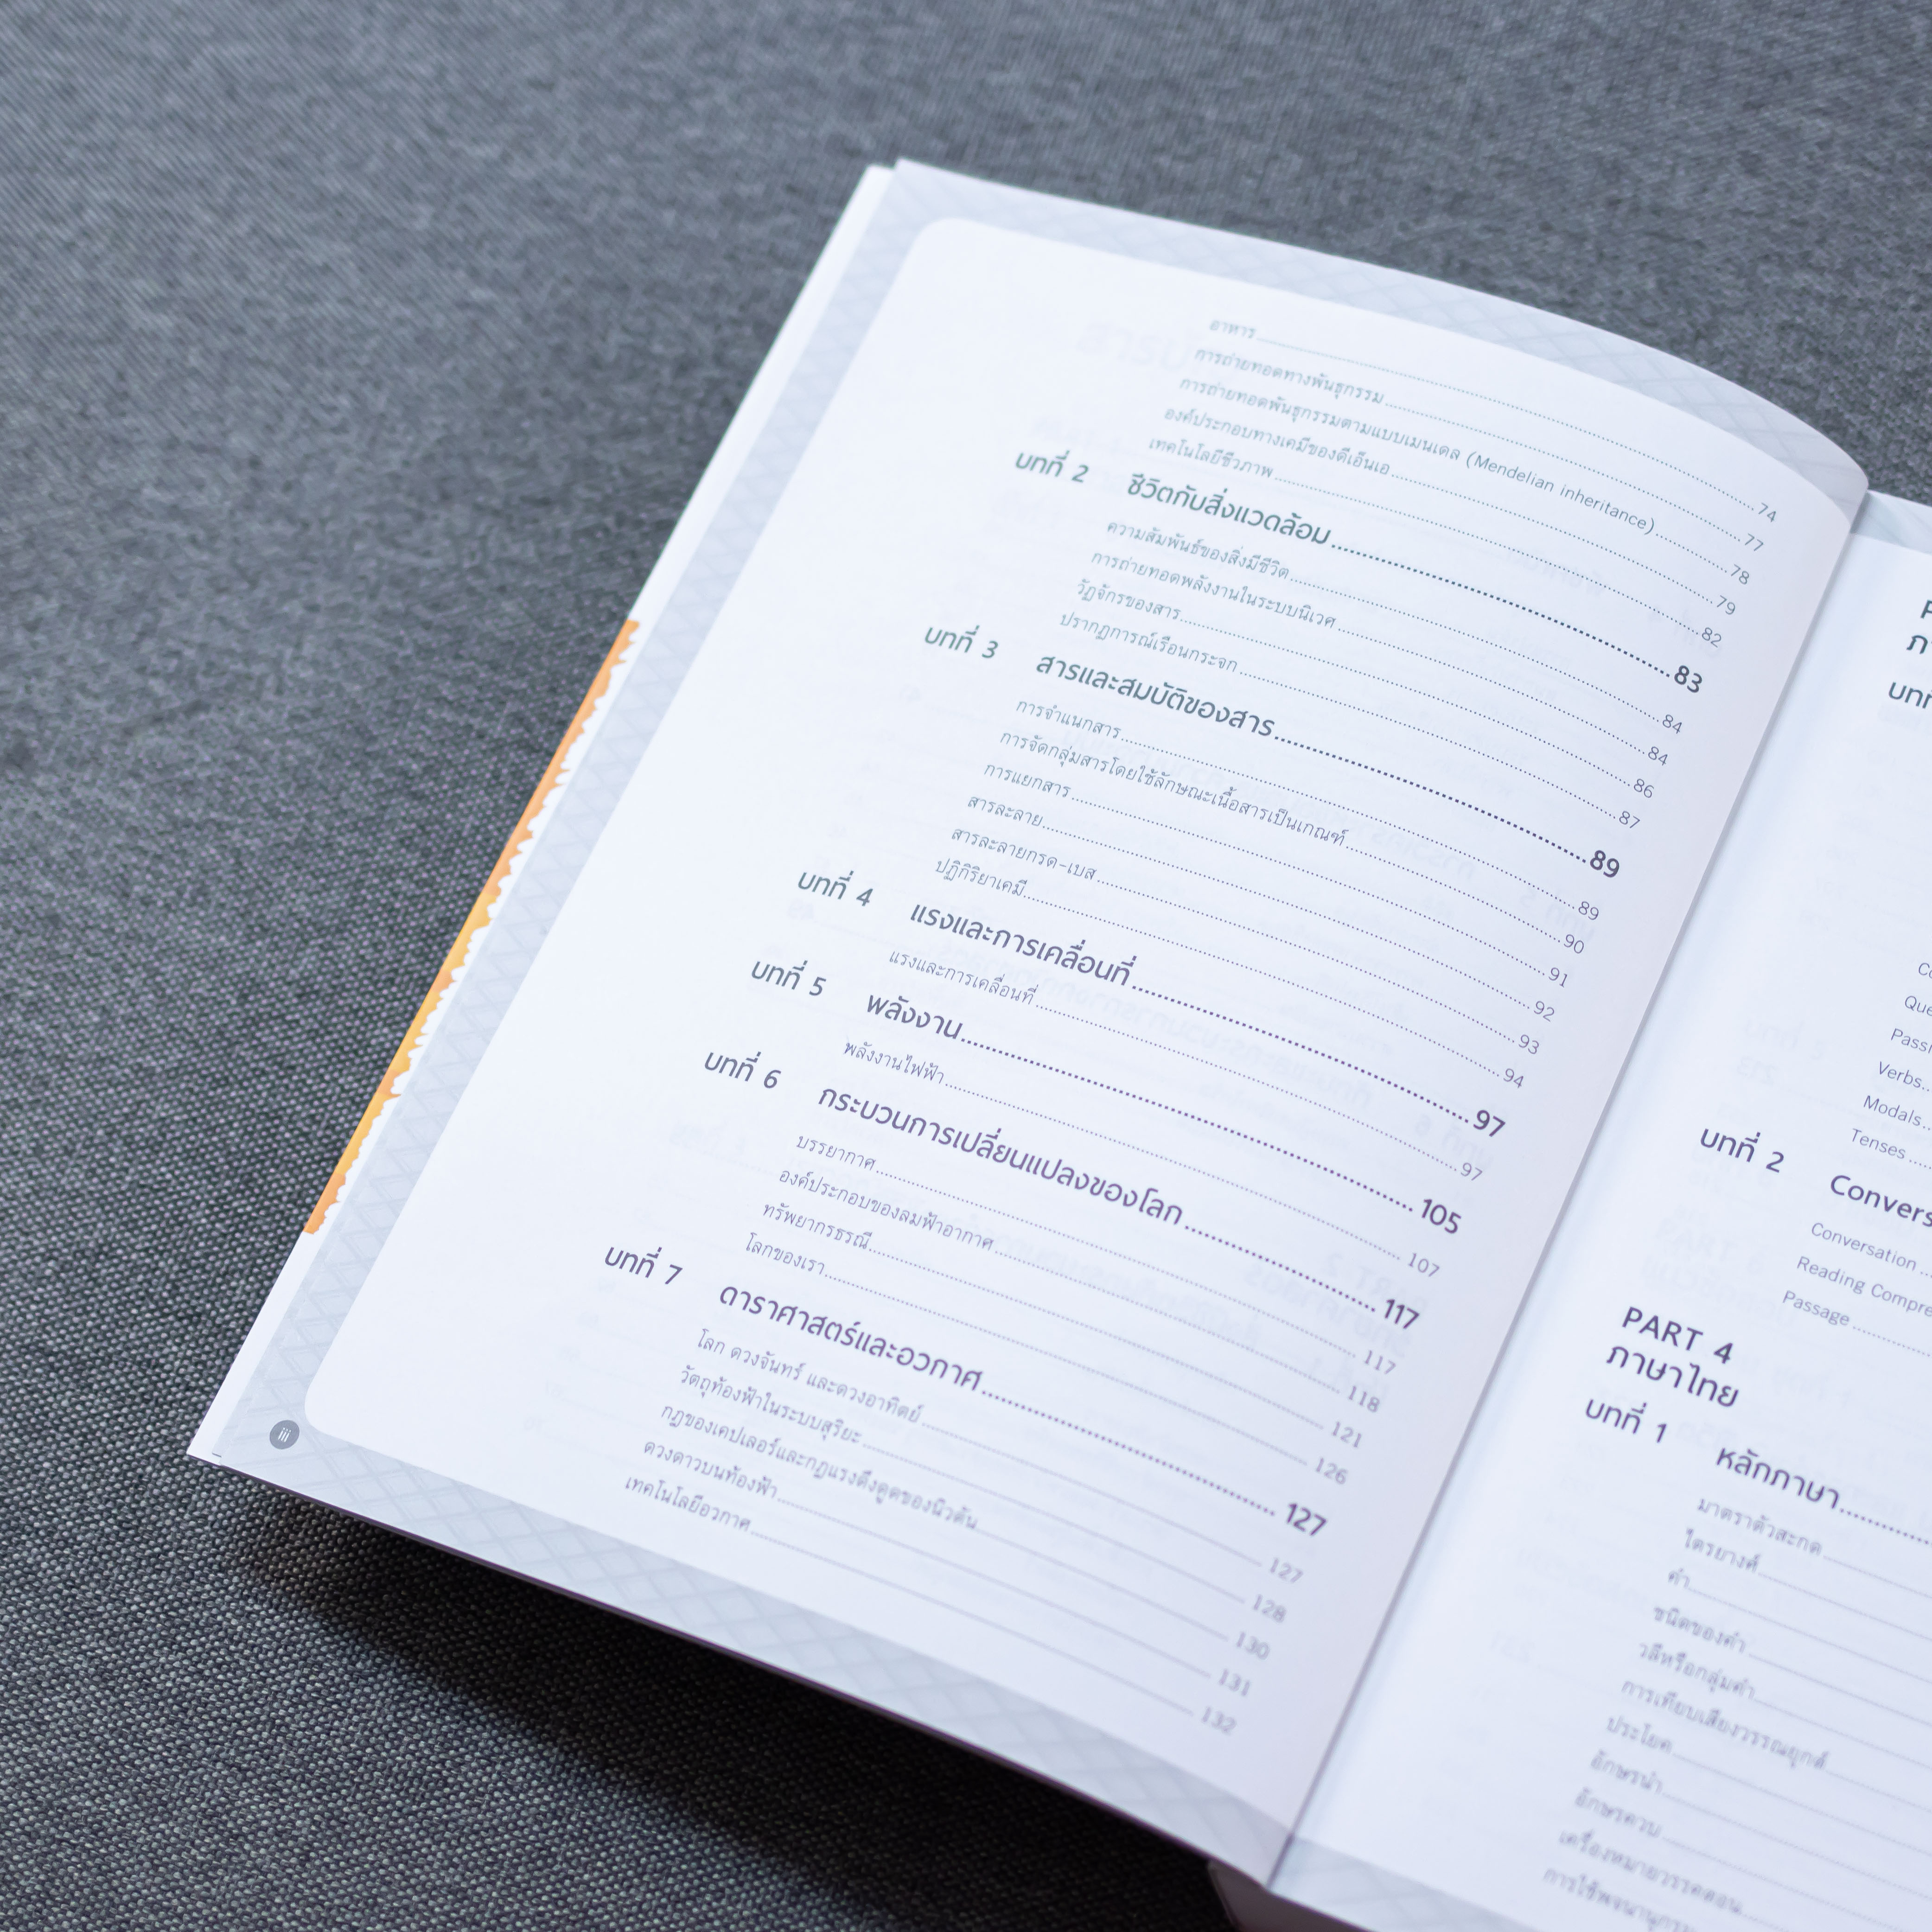 อาหาร 74
การถ่ายทอดทางพันธุกรรม 77
การถ่ายทอดพันธุกรรมตามแบบเมนเดล (Mendelian inheritance) 78
องค์ประกอบทางเคมีของดีเอ็นเอ 79
เทคโนโลยีชีวภาพ 82
บทที่ 2 ชีวิตกับสิ่งแวดล้อม 83
ความสัมพันธ์ของสิ่งมีชีวิต 84
การถ่ายทอดพลังงานในระบบนิเวศ 84
วัฏจักรของสาร 86
ปรากฏการณ์เรือนกระจก 87
บทที่ 3 สารและสมบัติของสาร 89
การจำแนกสาร 89
การจัดกลุ่มสารโดยใช้ลักษณะเนื้อสารเป็นเกณฑ์ 90
การแยกสาร 91
สารละลาย 92
สารละลายกรด-เบส 93
ปฏิกิริยาเคมี 94
บทที่ 4 แรงและการเคลื่อนที่ 97
แรงและการเคลื่อนที่ 97
บทที่ 5 พลังงาน 105
พลังงานไฟฟ้า 107
บทที่ 6 กระบวนการเปลี่ยนแปลงของโลก 117
บรรยากาศ 117
องค์ประกอบของลมฟ้าอากาศ 118
ทรัพยากรธรณี 121
โลกของเรา 126
บทที่ 7 ดาราศาสตร์และอวกาศ 127
โลก ดวงจันทร์ และดวงอาทิตย์ 127
วัตถุท้องฟ้าในระบบสุริยะ 128
กฎของเคปเลอร์และกฎแรงดึงดูดของนิวตัน 130
ดวงดาวบนท้องฟ้า 131
เทคโนโลยีอวกาศ 132
iii
Verbs
Modals
Tenses
บทที่ 2
Conversation
Reading
Passage
PART 4
ภาษาไทย
บทที่ 1 หลักภาษา
มาตราตัวสะกด
ไตรยางศ์
คำ
ชนิดของคำ
วลีหรือกลุ่มคำ
การเทียบเสียงวรรณยุกต์
ประโยค
อักษรนำ
อักษรควบ
เครื่องหมายวรรคตอน
การใช้พจนานุกรม